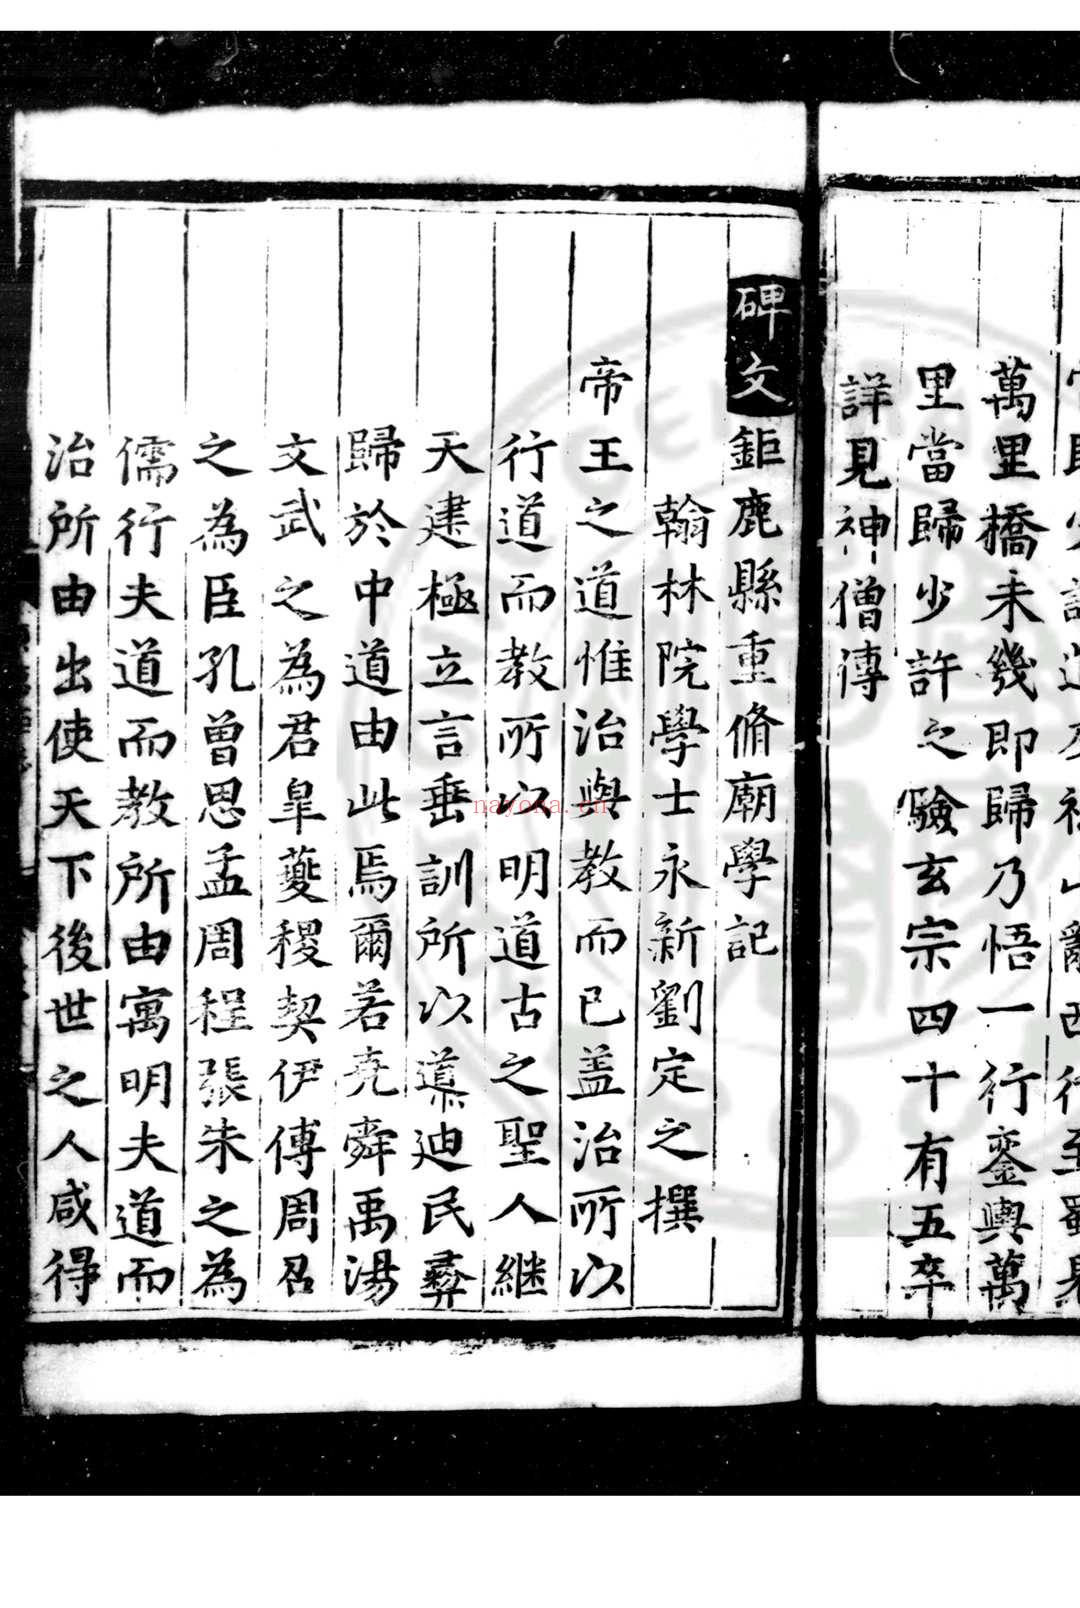 萬里橋未幾即歸乃悟一行鑾輿萬
里當歸少許之驗玄宗四十有五卒
詳見神僧傳
碑文鉅鹿縣重脩廟學記
翰林院學士永新劉定之撰
帝王之道惟治與教而已盖治所以
行道而教所以明道古之聖人継
天建極立言垂訓所以導迪民彛
歸於中道由此焉爾若堯舜禹湯
文武之為君皐夔稷契伊傅周召
之為臣孔曾思孟周程張朱之為
儒行夫道而教所由寓明夫道而
治所由出使天下後世之人咸得
nayona.cn